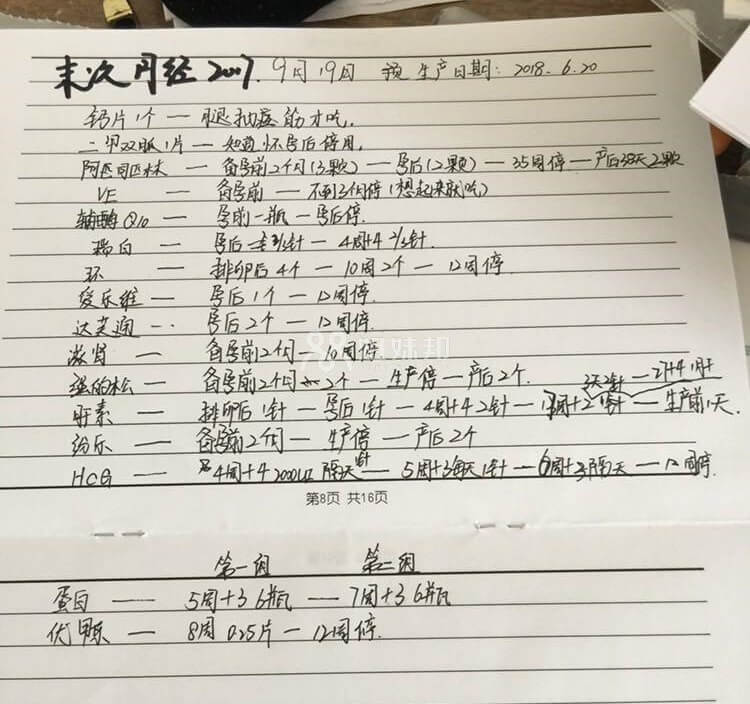 末次月经2007.9月19日 预生产日期:2018.6.20
钙片1个—腿抽筋才吃.
二甲双胍1片—知道怀孕后停用.
阿匹司匹林—备孕前2个月(3颗)—孕后(2颗)—35周停—产后38天2颗
VE—备孕前—不到3个月停(想起来就吃)
辅酶Q10—孕前一瓶—孕后停.
瑞白—孕后 2/3针—4周+4 2/3针.
环—排卵后4个—10周2个—12周停.
爱乐维—孕后1个—12周停.
达芙通—孕后2个—12周停.
滋肾—备孕前2个月—10周停.
强的松—备孕前2个月 2个—生产停—产后2个.
肝素—排卵后1针—孕后1针—4周+4 2针—周+2 针—生产前1天.
纷乐—备孕前2个月—生产停—产后2个
HCG—4周+4 2000U 隔天1针—5周+3每天1针—6周+3隔天—12周停.
第8页 共16页
第一周 第二周
蛋白—5周+3 6瓶—7周+3 6瓶
优甲乐—8周 0.25片—12周停.